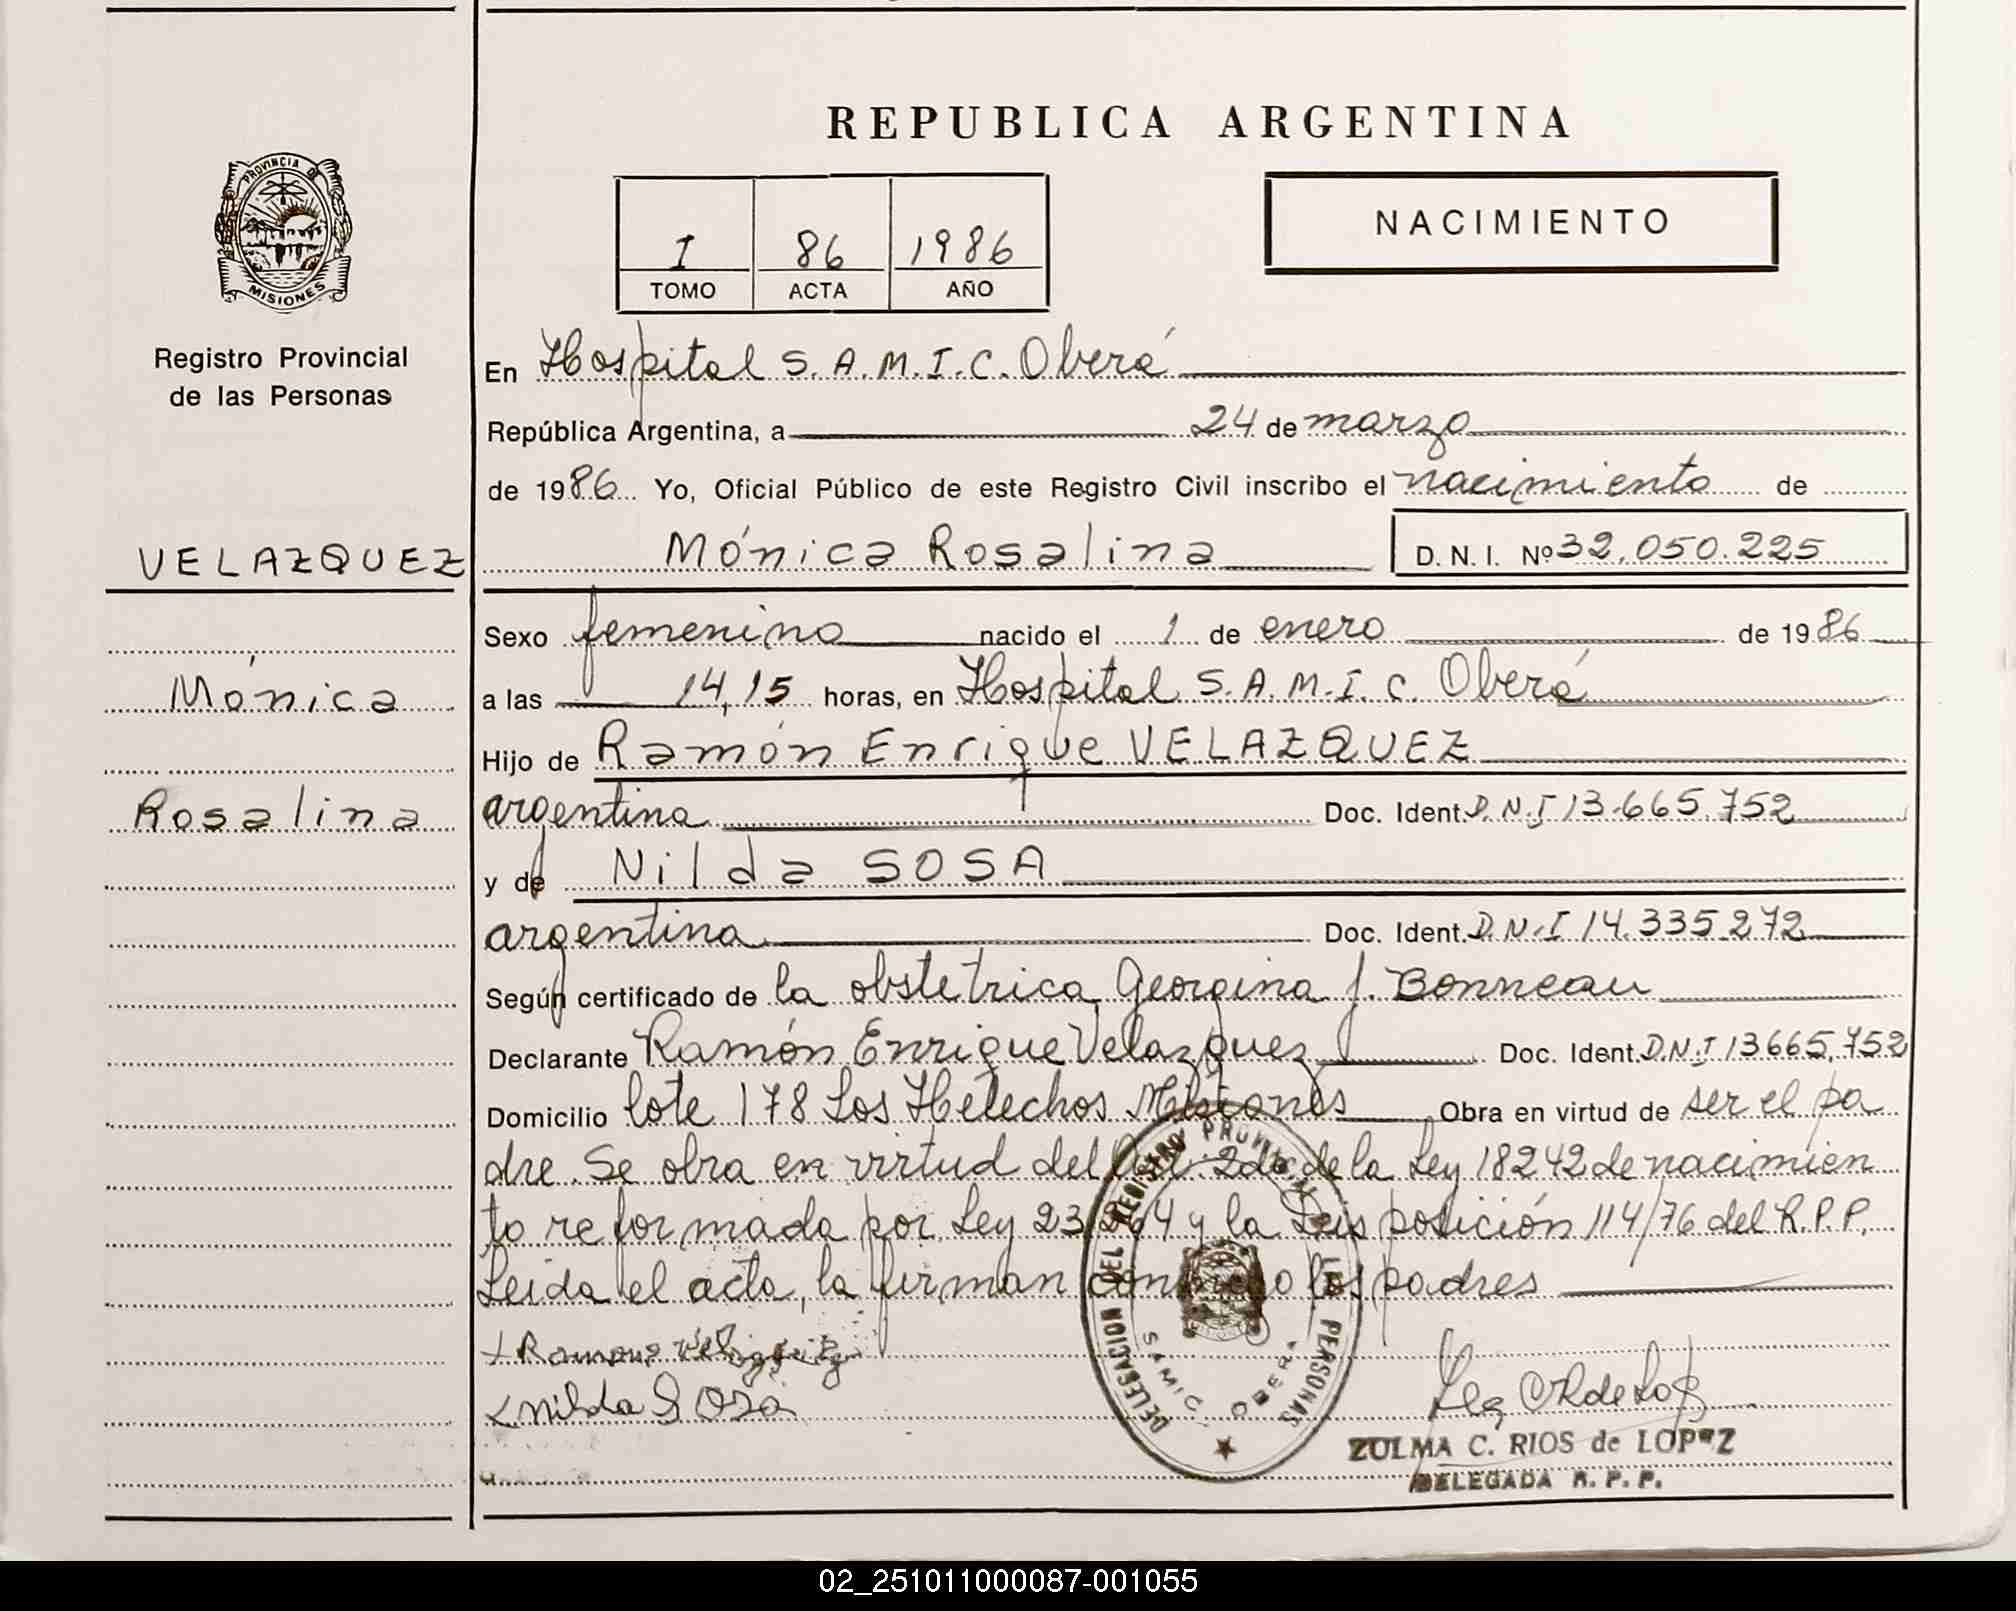 REPUBLICA ARGENTINA
PROVINCIA DE
MISIONES
Registro Provincial
de las Personas
I 86 1986
TOMO ACTA AÑO
NACIMIENTO
En Hospital S.A.M.I.C. Oberá
República Argentina, a 24 de marzo
de 1986 Yo, Oficial Público de este Registro Civil inscribo el nacimiento de
VELAZQUEZ Mónica Rosalina D.N.I. Nº 32.050.225
Sexo femenino nacido el 1 de enero de 1986
Mónica
a las 14,15 horas, en Hospital S.A.M.I.C. Oberá
Hijo de Ramón Enrique VELAZQUEZ
Rosalina
argentina Doc. Ident. D.N.I 13.665.752
y de Nilda SOSA
argentina Doc. Ident. D.N.I 14.335.272
Según certificado de la obstetrica Georgina J. Bonneau
Declarante Ramón Enrique Velazquez Doc. Ident. D.N.I 13665.752
Domicilio lote 178 Los Helechos Misiones Obra en virtud de ser el pa
dre. Se obra en virtud del Art. 2do de la Ley 18242 de nacimien
to reformada por Ley 23264 y la Disposición 114/76 del R.P.P.
Leida el acta, la firman conmigo los padres
nilda Sosa
DELEGACION DEL REGISTRO PROVINCIAL DE PERSONAS
SAMIC - OBERA
ZULMA C. RIOS de LOPEZ
DELEGADA R. P. P.
02_251011000087-001055